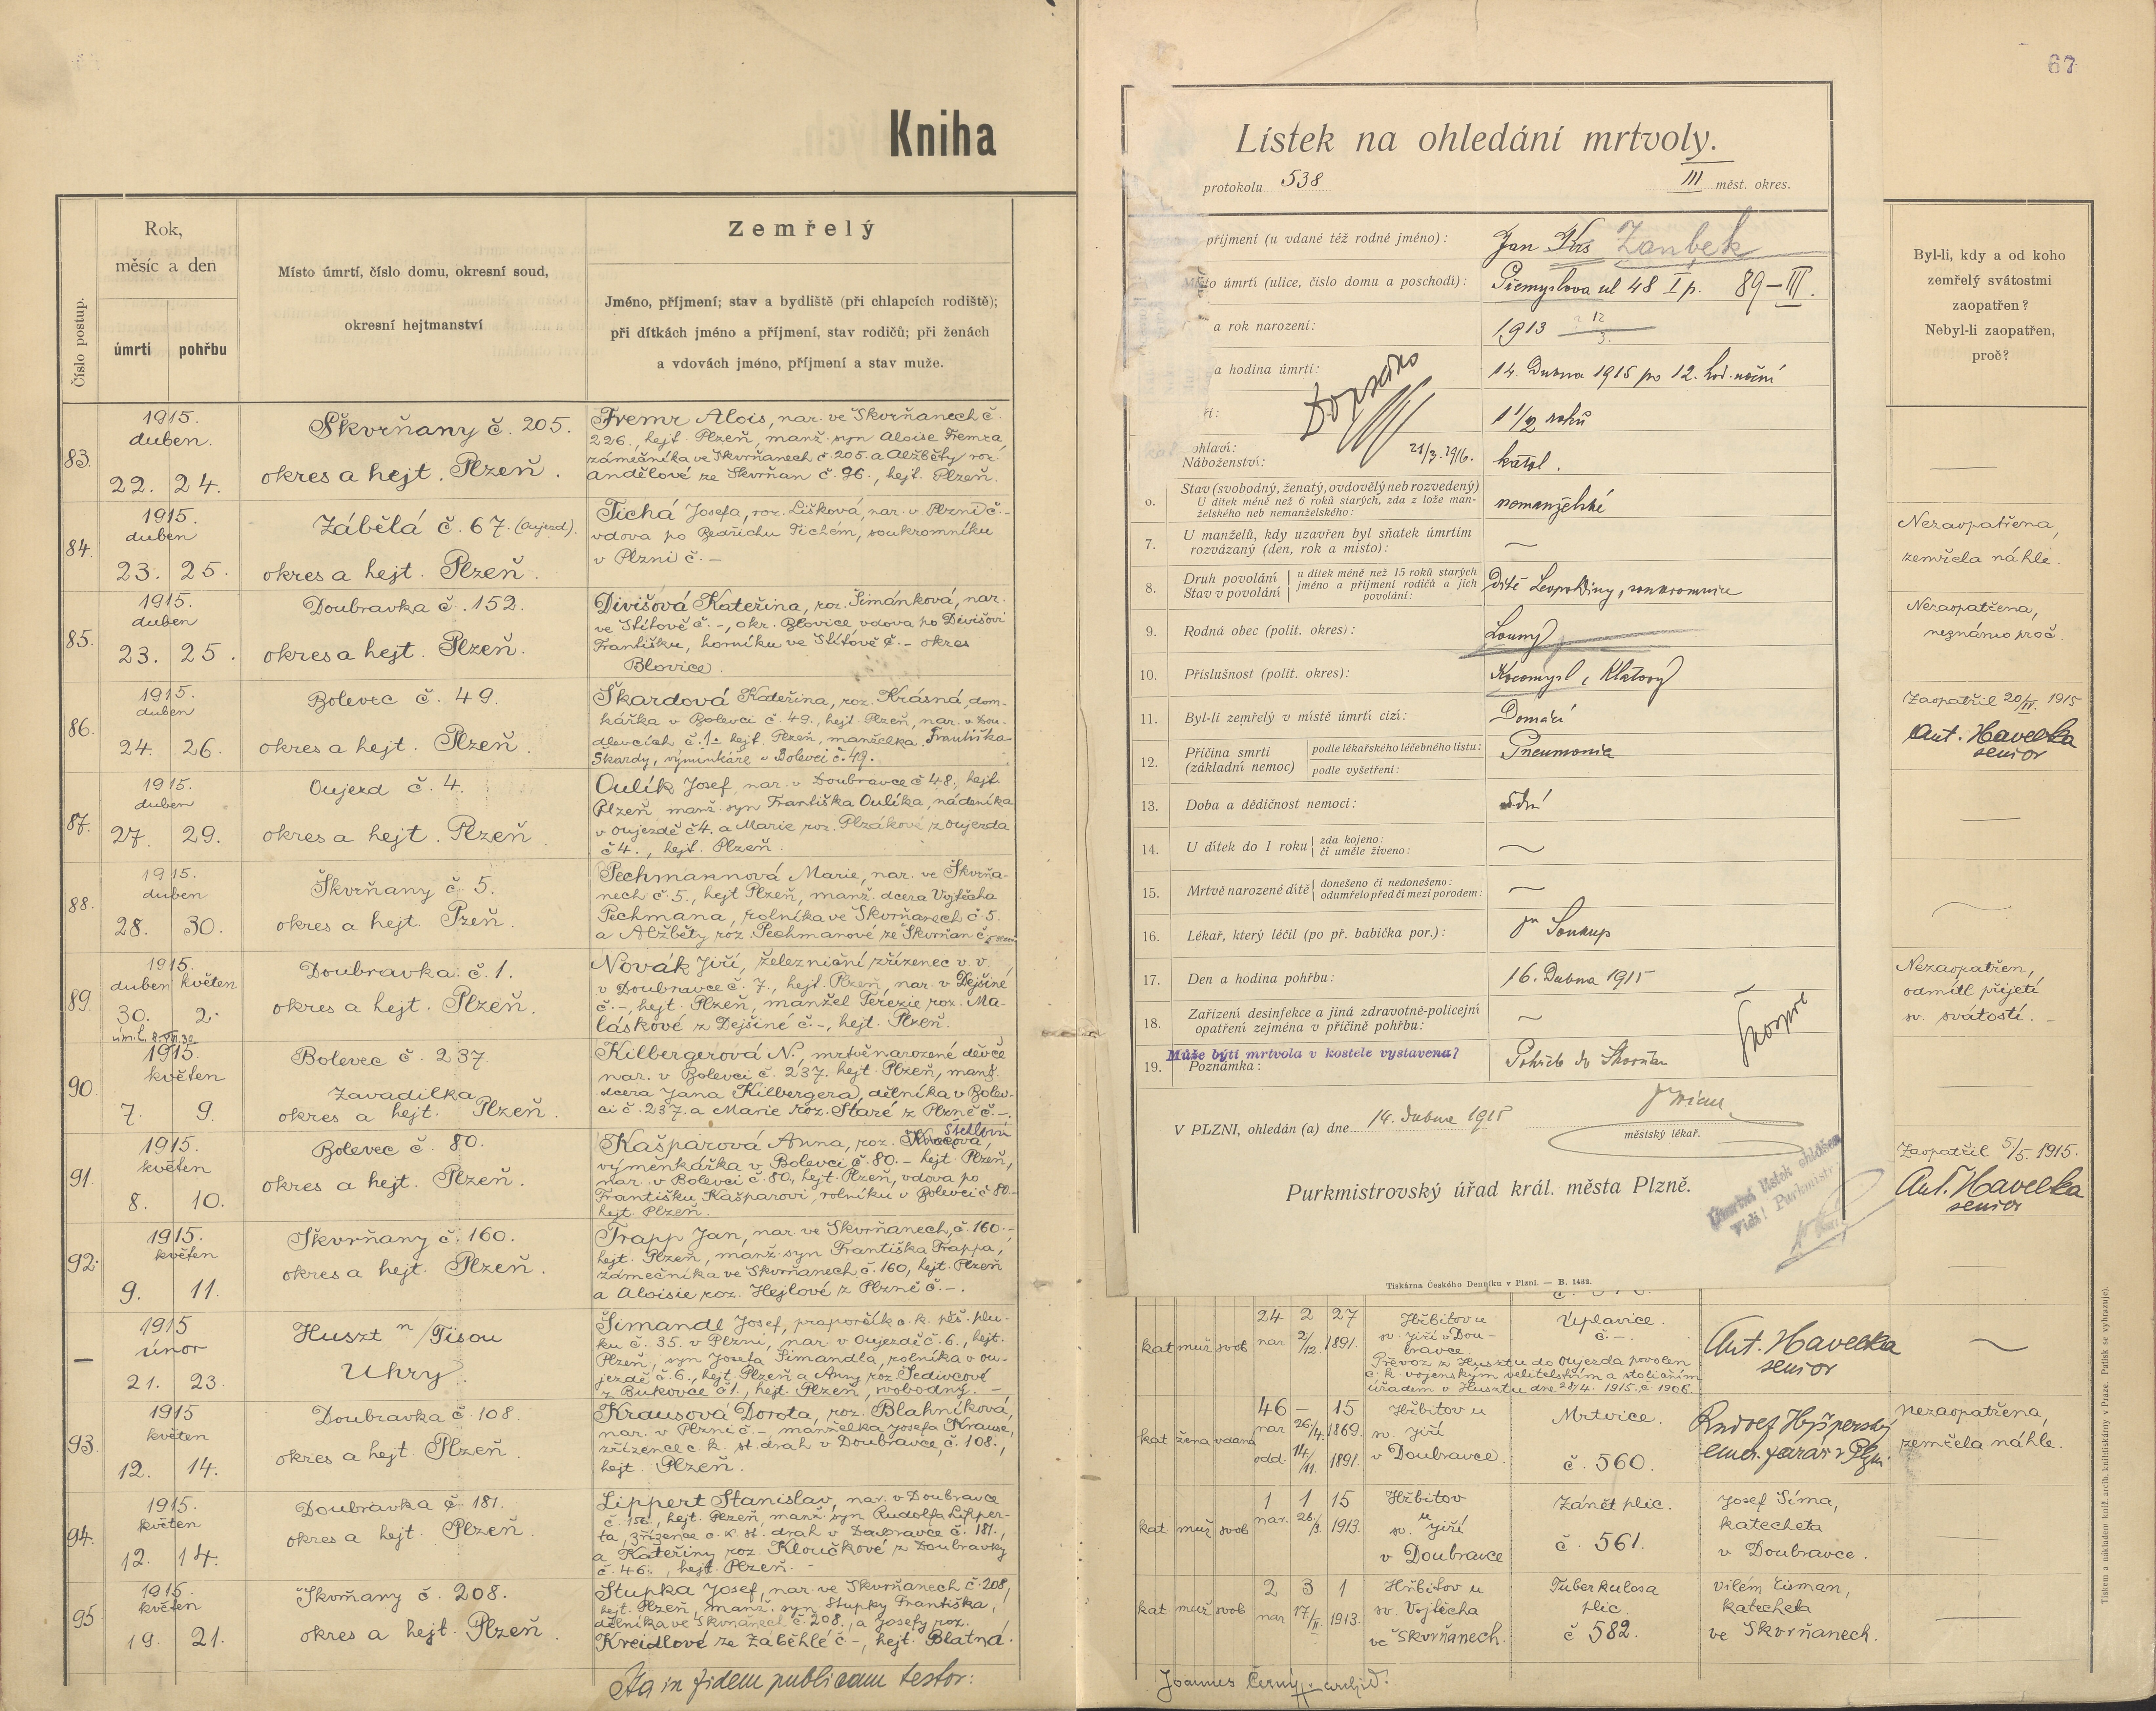 Kniha
Číslo postup.
Rok,
měsíc a den
úmrtí
pohřbu
Místo úmrtí, číslo domu, okresní soud,
okresní hejtmanství
Zemřelý
Jméno, příjmení; stav a bydliště (při chlapcích rodiště);
při dítkách jméno a příjmení, stav rodičů; při ženách
a vdovách jméno, příjmení a stav muže.
83.
1915.
duben.
22. 24.
Škvrňany č. 205.
okres a hejt. Plzeň.
Fremr Alois, nar. ve Škvrňanech č.
226., hejt. Plzeň, manž. syn Aloise Fremra,
zámečníka ve Škvrňanech č. 205. a Alžběty roz.
Andělové ze Škvrňan č. 96., hejt. Plzeň.
84.
1915.
duben
23. 25.
Zábělá č. 67. (Oujezd).
okres a hejt. Plzeň.
Tichá Josefa, roz. Lišková, nar. v Plzni č. –
vdova po Bedřichu Tichém, soukromníku
v Plzni č. –
85.
1915.
duben
23. 25.
Doubravka č. 152.
okres a hejt. Plzeň.
Divišová Kateřina, roz. Šimánková, nar.
ve Štítově č. –, okr. Blovice vdova po Divišovi
Františku, horníku ve Štítově č. – okres
Blovice.
86.
1915.
duben
24. 26.
Bolevec č. 49.
okres a hejt. Plzeň.
Škardová Kateřina, roz. Krásná, dom-
kářka v Bolevci č. 49., hejt. Plzeň, nar. v Dou-
dlevcích č. 1. hejt. Plzeň, manželka Františka
Škardy, výminkáře v Bolevci č. 49.
87.
1915.
duben
27. 29.
Oujezd č. 4.
okres a hejt. Plzeň
Oulík Josef, nar. v Doubravce č. 48., hejt.
Plzeň, manž. syn Františka Oulíka, nádeníka
v Oujezdě č. 4. a Marie roz. Plzákové z Oujezda
č. 4., hejt. Plzeň.
88.
1915.
duben
28. 30.
Škvrňany č. 5.
okres a hejt. Pzeň.
Pechmannová Marie, nar. ve Škvrňa-
nech č. 5., hejt Plzeň, manž. dcera Vojtěcha
Pechmana, rolníka ve Škvrňanech č. 5.
a Alžběty roz. Pechmanové ze Škvrňan č.
89.
1915.
duben květen
30. 2.
Doubravka č. 1.
okres a hejt. Plzeň.
Novák Jiří, železniční zřízenec v. v.
v Doubravce č. 7., hejt. Plzeň, nar. v Dejšiné
č. –, hejt. Plzeň, manžel Terezie roz. Ma-
láskové z Dejšiné č. –, hejt. Plzeň.
90.
1915.
květen
7. 9.
Bolevec č. 237.
Zavadilka
okres a hejt. Plzeň.
Kilbergerová N., mrtvě narozené děvče
nar. v Bolevci č. 237. hejt. Plzeň, manž.
dcera Jana Kilbergera, dělníka v Bolev-
ci č. 237. a Marie roz. Staré z Plzně č. –.
91.
1915.
květen
8. 10.
Bolevec č. 80.
okres a hejt. Plzeň.
Kašparová Anna, roz.
výměnkářka v Bolevci č. 80. – hejt. Plzeň,
nar. v Bolevci č. 80, hejt. Plzeň, vdova po
Františku Kašparovi, rolníku v Bolevci č. 80. –
hejt. Plzeň.
92.
1915.
květen
9. 11.
Škvrňany č. 160.
okres a hejt. Plzeň.
Trapp Jan, nar. ve Škvrňanech, č. 160. –,
hejt. Plzeň, manž. syn Františka Trappa,
zámečníka ve Škvrňanech č. 160, hejt. Plzeň
a Aloisie roz. Hejlové z Plzně č. –.
–
1915
únor
21. 23.
Huszt n/Tisou
Uhry.
Šimandl Josef, praporčík c. k. pěš. plu-
ku č. 35. v Plzni, nar. v Oujezdě č. 6., hejt.
Plzeň, syn Josefa Šimandla, rolníka v Ou-
jezdě č. 6., hejt. Plzeň a Anny roz. Šedivcové
z Bukovce č. 1., hejt. Plzeň, svobodný. –
93.
1915
květen
12. 14.
Doubravka č. 108.
okres a hejt. Plzeň.
Krausová Dorota, roz. Blahníková,
nar. v Plzni č. –, manželka Josefa Krause,
zřízence c. k. st. drah v Doubravce, č. 108.,
hejt. Plzeň.
94.
1915.
květen
12. 14.
Doubravka č. 181.
okres a hejt. Plzeň.
Lippert Stanislav, nar. v Doubravce
č. 156., hejt. Plzeň, manž. syn Rudolfa Lipper-
ta, zřízence c. k. st. drah v Doubravce č. 181.,
a Kateřiny roz. Kloučkové z Doubravky
č. 46., hejt. Plzeň. –
95.
1915.
květen
19. 21.
Škvrňany č. 208.
okres a hejt. Plzeň.
Štupka Josef, nar. ve Škvrňanech č. 208,
hejt. Plzeň, manž. syn Štupky Františka,
dělníka ve Škvrňanech č. 208., a Josefy roz.
Kreidlové ze Záběhlé č –, hejt. Blatná.
Ita in fidem publicam testor:
67
Lístek na ohledání mrtvoly.
protokolu 538
III měst. okres.
příjmení (u vdané též rodné jméno):
Jan Kus Zanbek
Místo úmrtí (ulice, číslo domu a poschodí):
Přemyslova ul 48 I p. 89–III.
a rok narození:
1913 12/3.
a hodina úmrtí:
14. Dubna 1915 po 12. hod. noční
1 1/2 roků
Dopsáno
21/3. 1916.
ohlaví:
Náboženství:
katol.
Stav (svobodný, ženatý, ovdovělý neb rozvedený)
U dítek méně než 6 roků starých, zda z lože man-
želského neb nemanželského:
nemanželské
7.
U manželů, kdy uzavřen byl sňatek úmrtím
rozvázaný (den, rok a místo):
8.
Druh povolání
Stav v povolání
u dítek méně než 15 roků starých
jméno a příjmení rodičů a jich
povolání:
Dítě Leopoldiny, soukromnice
9.
Rodná obec (polit. okres):
Louny
10.
Příslušnost (polit. okres):
Kocomysl, Klatovy
11.
Byl-li zemřelý v místě úmrtí cizí:
Domácí
12.
Příčina smrti
(základní nemoc)
podle lékařského léčebného listu:
podle vyšetření:
Pneumonia
13.
Doba a dědičnost nemoci:
14.
U dítek do 1 roku
zda kojeno:
či uměle živeno:
15.
Mrtvě narozené dítě
donešeno či nedonešeno:
odumřelo před či mezi porodem:
16.
Lékař, který léčil (po př. babička por.):
Dr Soukup
17.
Den a hodina pohřbu:
16. Dubna 1915
18.
Zařízení desinfekce a jiná zdravotně-policejní
opatření zejména v příčině pohřbu:
Může býti mrtvola v kostele vystavena?
19.
Poznámka:
Pohřeb do Škvrňan
V PLZNI, ohledán (a) dne 14. dubna 1915
městský lékař.
Purkmistrovský úřad král. města Plzně.
Úmrtní lístek ohlášen
Tiskárna Českého Denníku v Plzni. — B. 1439.
Byl-li, kdy a od koho
zemřelý svátostmi
zaopatřen?
Nebyl-li zaopatřen,
proč?
Nezaopatřena,
zemřela náhle.
Nezaopatřena,
neznámo proč.
Zaopatřil 20/IV. 1915
Ant. Havelka
senior
Nezaopatřen,
odmítl přijetí
sv. svátostí. –
Zaopatřil 5/5. 1915.
Ant. Havelka
senior
kat muž svob
24 2 27
nar 2/12. 1891.
Hřbitov u
sv. Jiří v Dou-
bravce
Převoz z Husztu do Oujezda povolen
c. k. vojenským velitelstvím a stoličním
úřadem v Husztu dne 28/4. 1915. č. 1906.
Uplavice.
č. –.
Ant. Havelka
senior
kat žena vdaná
46 – 15
nar 26./4. 1869.
odd. 14/11. 1891.
Hřbitov u
sv. Jiří
v Doubravce.
Mrtvice.
č. 560.
emer. farář v Plzni.
nezaopatřena,
zemřela náhle.
kat. muž svob
1 1 15
nar. 26./3. 1913.
Hřbitov
u
sv. Jiří
v Doubravce
Zánět plic.
č. 561.
Josef Šíma,
katecheta
v Doubravce.
kat muž svob
2 3 1
nar 17./II. 1913.
Hřbitov u
sv. Vojtěcha
ve Škvrňanech.
Tuberkulosa
plic.
č 582.
Vilém Eisman,
katecheta
ve Škvrňanech.
Joannes Černý archid.
Tiskem a nákladem kníž. arcib. knihtiskárny v Praze. Patisk se vyhrazuje.